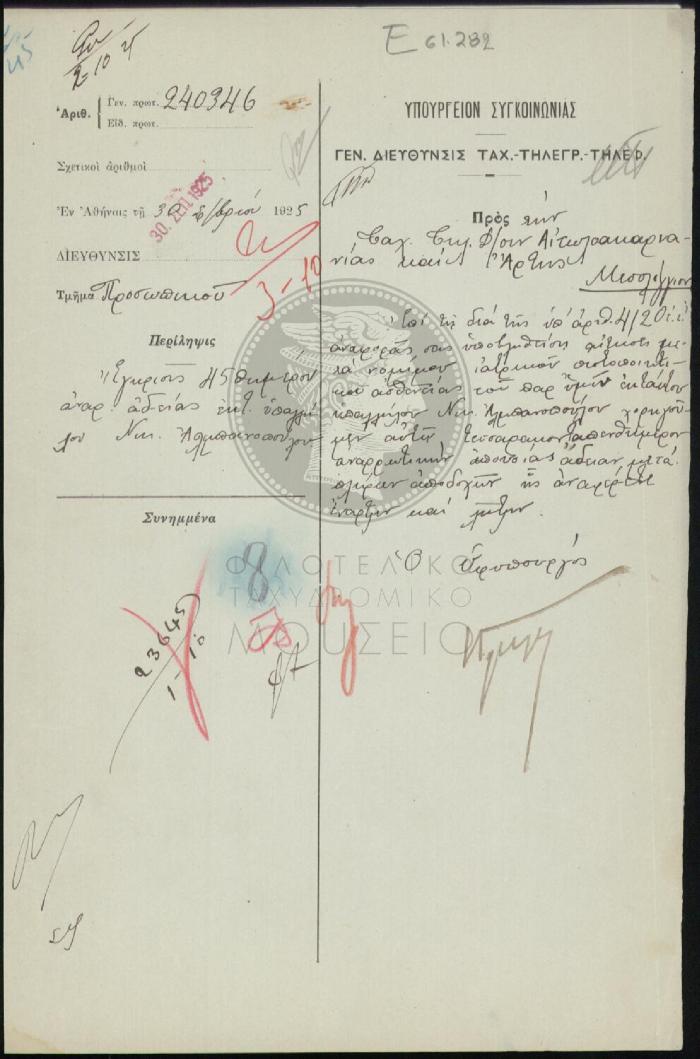 2-10 25
Ε 61.282
Ἀριθ. Γεν. πρωτ. 240346
Εἰδ. πρωτ.
Σχετικοὶ ἀριθμοὶ
30. ΣΕΠ 1925
Ἐν Ἀθήναις τῇ 30 7/βρίου 1925
ΔΙΕΥΘΥΝΣΙΣ
3-10
Τμῆμα Προσωπικοῦ
Περίληψις
Ἔγκρισις 45θημέρου
ἀναρ. ἀδείας ἐκτ. ὑπαλλή
λου Νικ. Ἀλμπανοπούλου
Συνημμένα
8
23645
1-10
ΥΠΟΥΡΓΕΙΟΝ ΣΥΓΚΟΙΝΩΝΙΑΣ
ΓΕΝ. ΔΙΕΥΘΥΝΣΙΣ ΤΑΧ.-ΤΗΛΕΓΡ.-ΤΗΛΕΦ.
Πρὸς τὴν
Ταχ. Τηλ. Δ/σιν Αἰτωλοακαρνα-
νίας καὶ Ἄρτης
Μεσολόγγιον
Ἐπὶ τῇ διὰ τῆς ὑπ' ἀριθ. 4120 ἐ.ἔ.
ἀναφορᾶς σας ὑποβληθείσῃ αἰτήσει με-
τὰ νομίμου ἰατρικοῦ πιστοποιητι-
κοῦ ἀσθενείας τοῦ παρ' ὑμῖν ἐκτάκτου
ὑπαλλήλου Νικ. Ἀλμπανοπούλου χορηγοῦ-
μεν αὐτῷ τεσσαρακονταπενθήμερον
ἀναρρωτικὴν ἀπουσίας ἄδειαν μετὰ
πλήρων ἀποδοχῶν ἧς ἀναφέρετε
ἔναρξιν καὶ λῆξιν.
Ὁ Ὑπουργός
ΦΙΛΟΤΕΛΙΚΟ
ΤΑΧΥΔΡΟΜΙΚΟ
ΜΟΥΣΕΙΟ